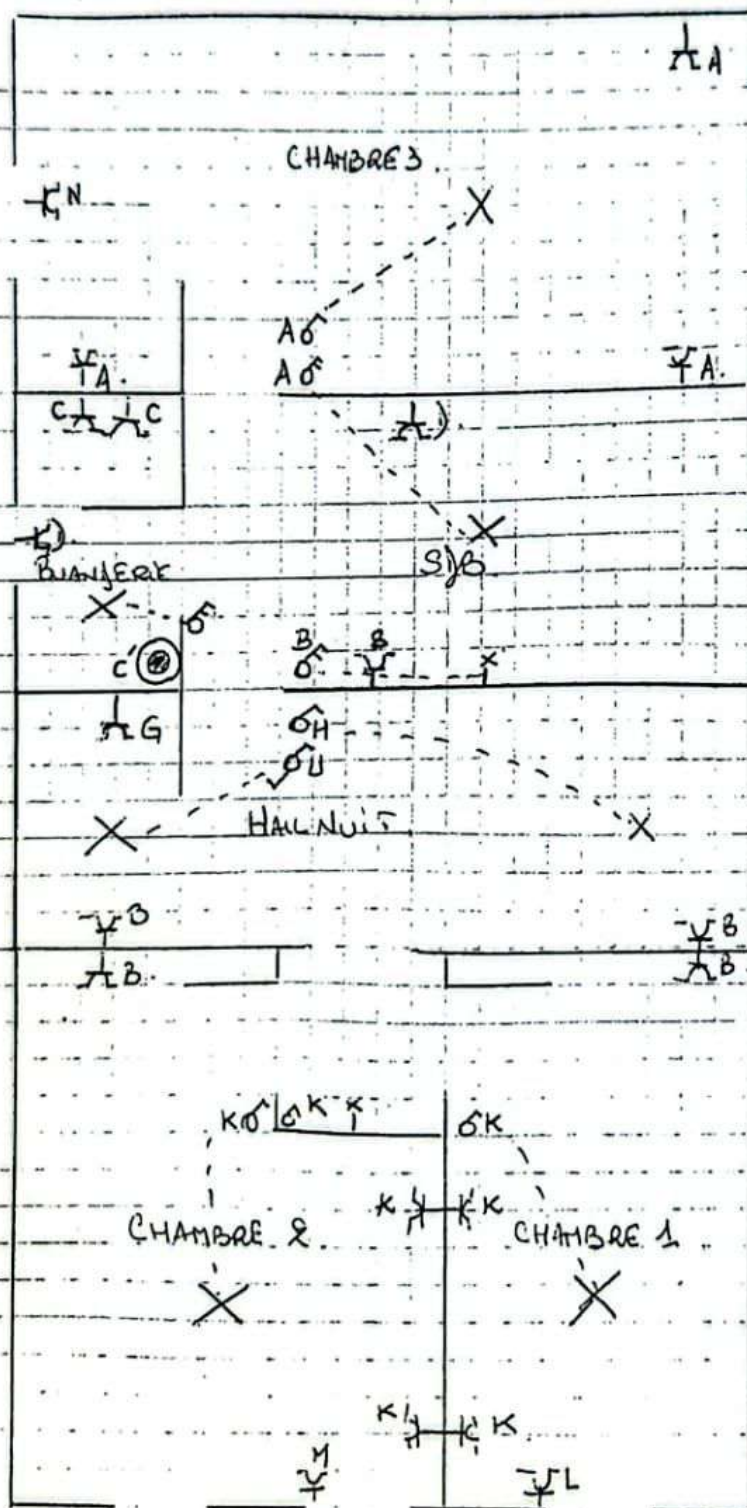 A
CHAMBRE 3
N
A
A
A.
A.
C C
BUANDERIE
SDB
C'
B
B
G
H
U
HALL NUIT
B
B
B.
B
K
K
K
K
K
CHAMBRE 2
CHAMBRE 1
K
K
M
L